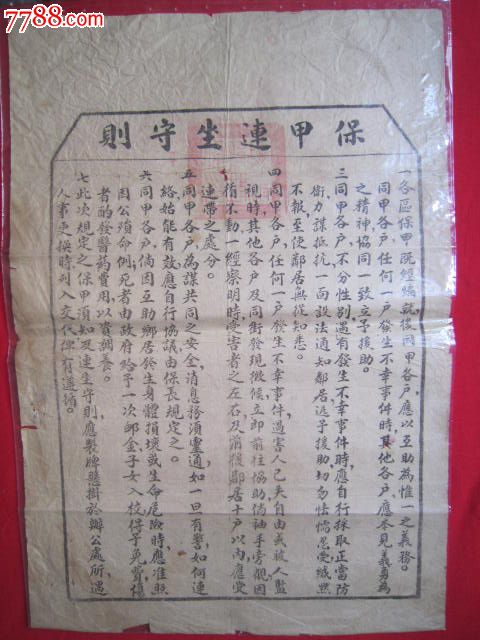 7788.com
保甲連坐守則
一各區保甲既經編就後同甲各户應以互助為惟一之義務。
同甲各户任何一户發生不幸事件時其他各户應本見義勇為
之精神協同一致立予援助。
三同甲各户不分性别遇有發生不幸事件時應自行採取正當防
衛力謀抵抗一面設法通知鄰居迅予援助切勿怯懦忍受緘黙
不報至使鄰居無從知悉。
四同甲各户任何一户發生不幸事件遇害人已失自由或被人監
視時其他各户及同街發現徵候立即前往協助倘袖手旁觀因
循不動一經察明時受害者之左右及前後鄰居十户以内應受
連帶之處分。
五同甲各户為謀共同之安全消息務須靈通如一旦有警如何連
絡始能有效應自行協議由保長規定之。
六同甲各户倘因互助鄉居發生身體損壞或生命危險時應准照
因公殞命例死者由政府給予一次邺金子女入校得予免費傷
者酌發醫药費用以資調養。
七此次規定之保甲須知及連坐守則應製牌懸掛於辦公處所遇
人事更换時列入交代俾有遵循。